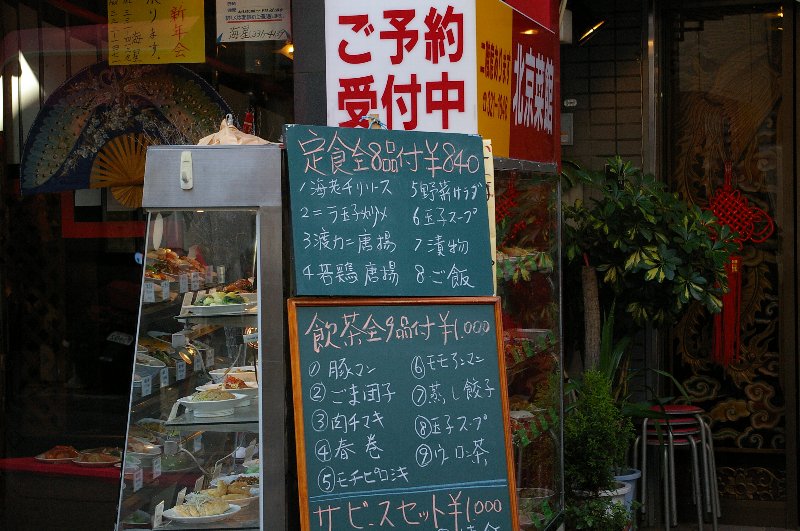 新年会
ります。
海星
海星 231-4119
ご予約
受付中
二階席あります
北京菜館
定食全8品付￥840
1海老チリソース
2ニラ玉子炒メ
3渡カニ唐揚
4若鶏唐揚
5野菜サラダ
6玉子スープ
7漬物
8ご飯
飲茶全9品付￥1.000
①豚マン
②ごま団子
③肉チマキ
④春巻
⑤モチピロシキ
⑥モモアンマン
⑦蒸し餃子
⑧玉子スープ
⑨ウーロン茶
サービスセット￥1.000